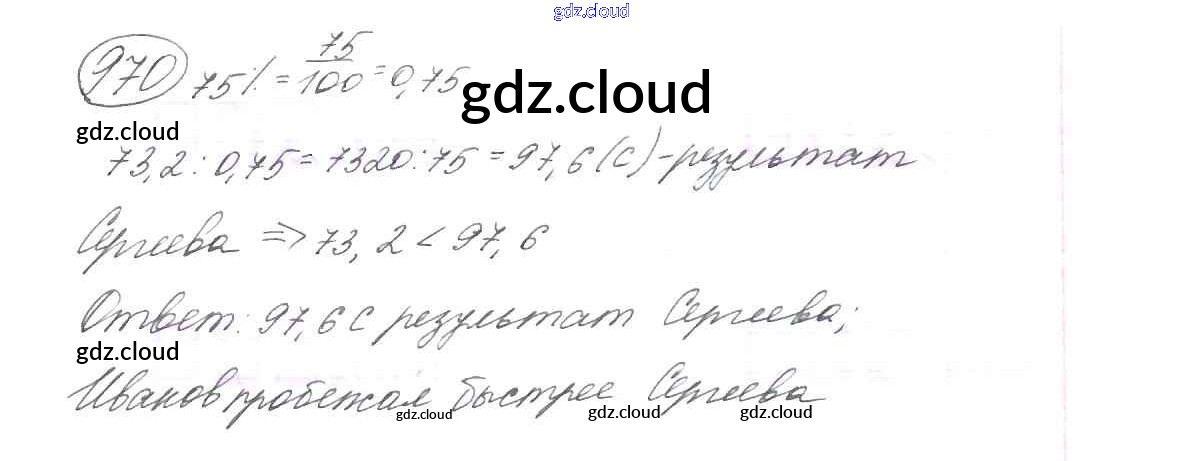 gdz.cloud
970 75% = 75/100 = 0,75
gdz.cloud
gdz.cloud
73,2 : 0,75 = 7320 : 75 = 97,6 (с) - результат
Сергеева => 73,2 < 97,6
Ответ: 97,6 с результат Сергеева;
gdz.cloud
Иванов пробежал быстрее Сергеева
gdz.cloud gdz.cloud gdz.cloud